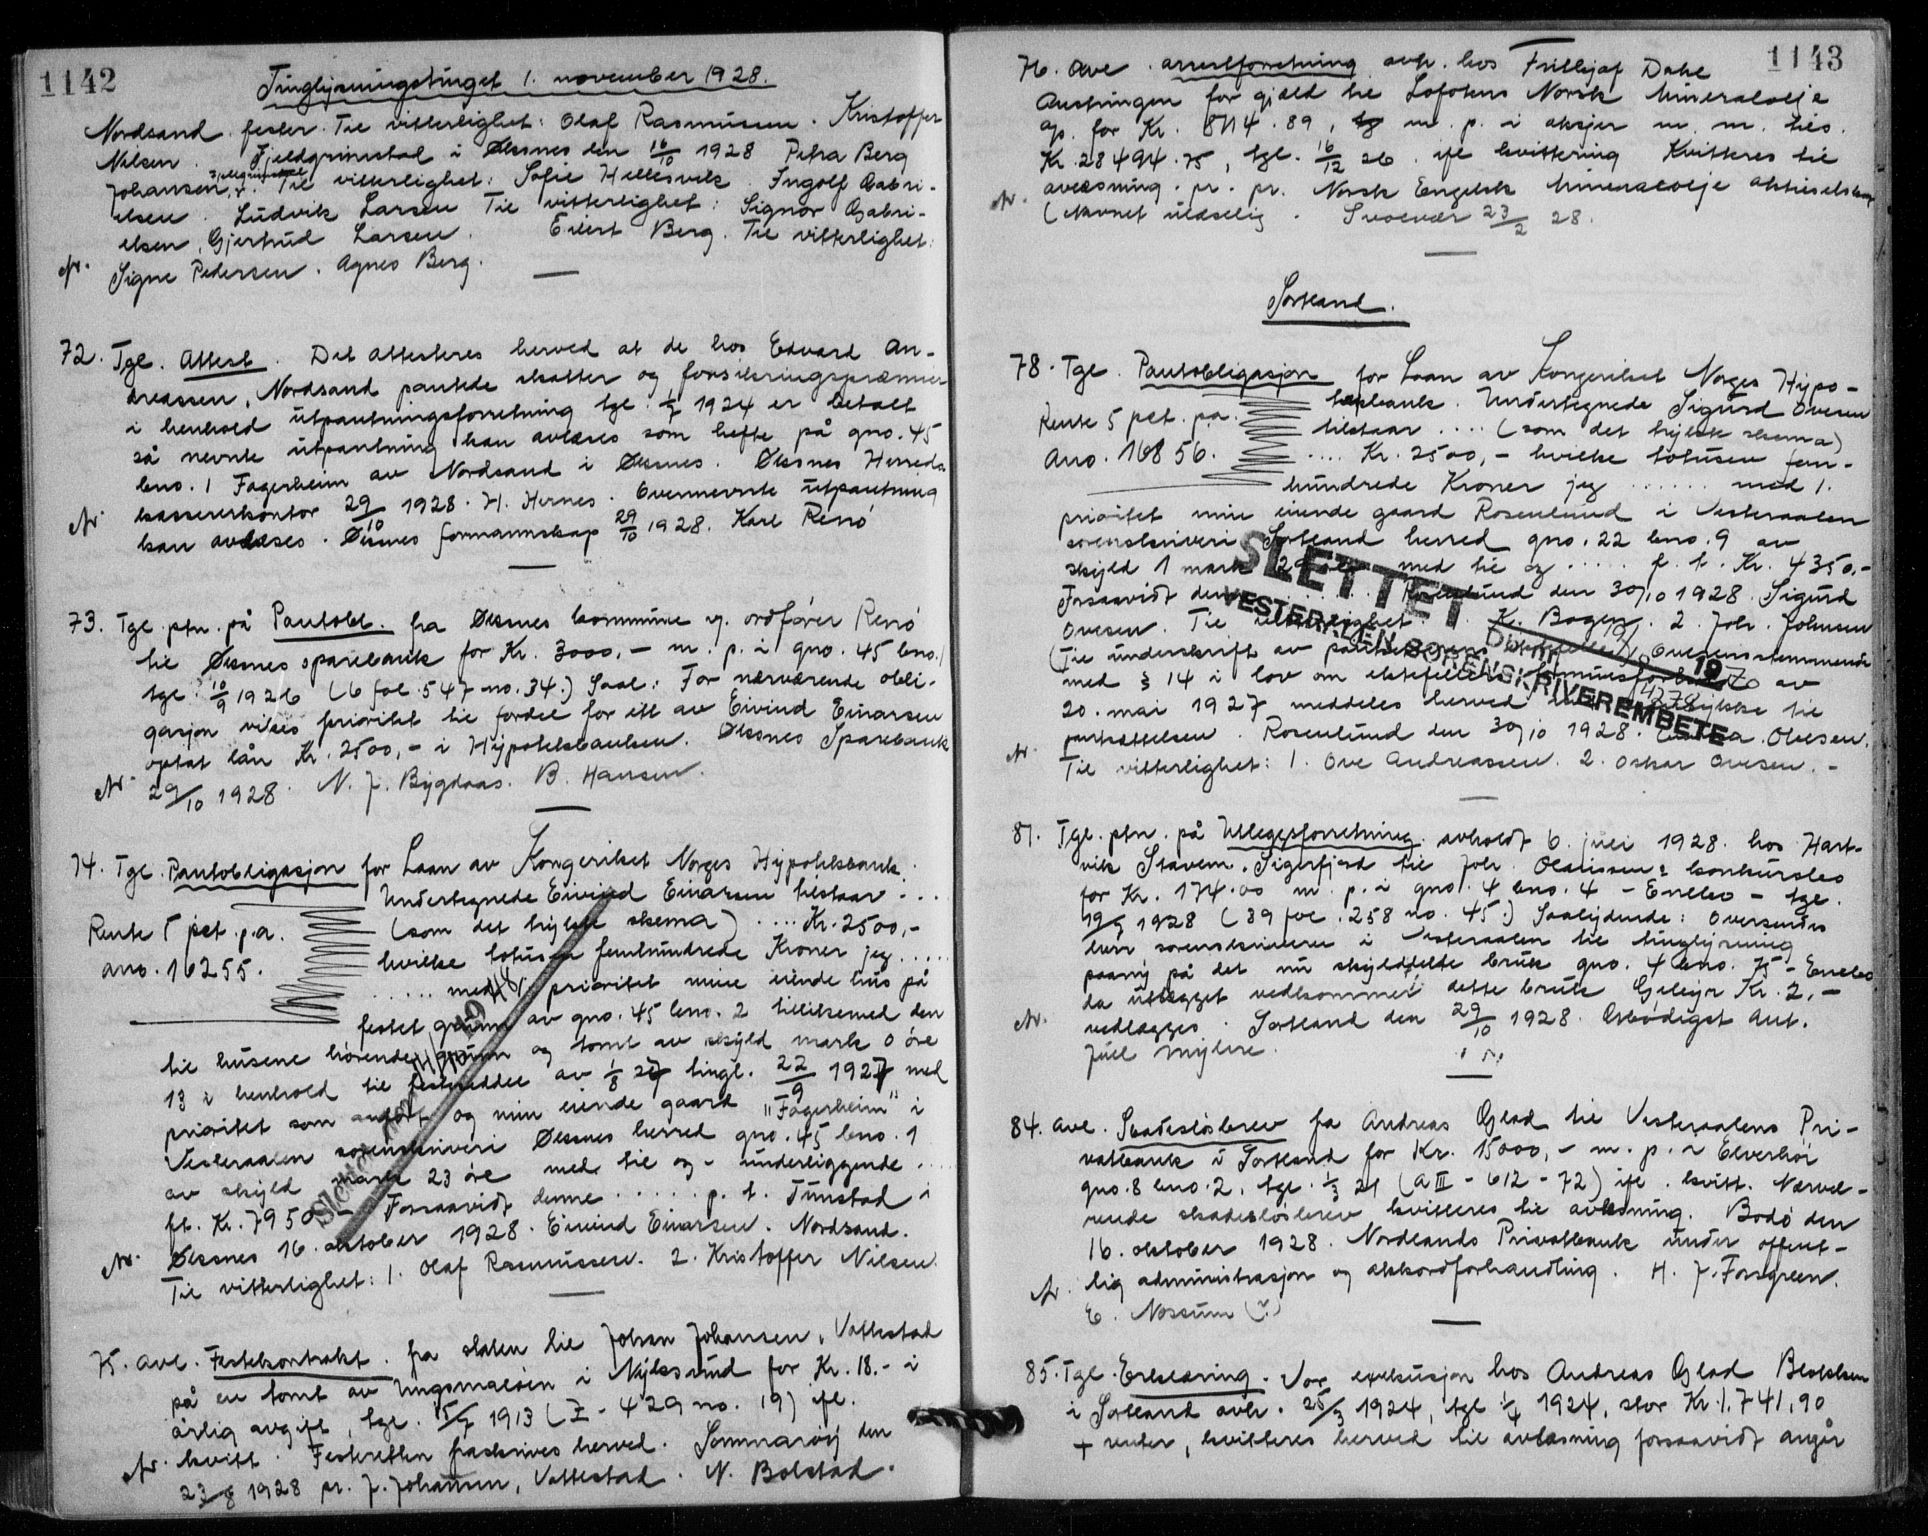 1142
Tinglysningstinget 1. november 1928.
Nordsand fester. Til vitterlighet: Olaf Rasmussen. Kristoffer
Nilsen. Fjeldgrimstal i Øksnes den 16/10 1928 Petra Berg
Johansen, Til vitterlighet: Sofie Hellesvik Ingolf Gabri-
elsen. Ludvik Larsen Til vitterlighet: Signor Gabri-
elsen, Gjertrud Larsen. Eilert Berg. Til vitterlighet:
Signe Pedersen. Agnes Berg.
72. Tgl. Attest. Det attesteres herved at de hos Edvard An-
dreassen, Nordsand pantede skatter og forsikringspræmier
i henhold utpantningsforretning tgl. 1/7 1924 er betalt
så nevnte utpantning kan avlæses som hefte på gno. 45
bno. 1 Fagerheim av Nordsand i Øksnes. Øksnes Herreds
kassererkontor 29/10 1928. H. Hernes. Ovennevnte utpantning
kan avlæses. Øksnes formannskap 29/10 1928. Karl Renö
73. Tgl. ptn. på Pantobl. fra Øksnes kommune v. ordfører Renö
til Øksnes sparebank for Kr. 3000,- m. p. i gno. 45 bno. 1
tgl. 10/9 1926 (6 fol. 547 no. 34.) Saal: For nærværende obli-
gasjon vikes prioritet til fordel for ett av Eivind Einarsen
optat lån Kr. 2500,- i Hypotekbanken. Øksnes Sparebank
29/10 1928. N. J. Bygdaas. B. Hansen.
74. Tgl. Pantobligasjon for Laan av Kongeriket Norges Hypotekbank.
Undertegnede Eivind Einarsen tilstaar ...
Rente 5 pct. p.a. (som det trykte skema) .... Kr. 2500,-
ano. 16255. hvilke totusen femhundrede Kroner jeg .....
..... med 1. prioritet mine eiende hus på
festet grunn av gno. 45 bno. 2 tillikemed den
til husene hörende grunn og tomt av skyld mark 0 öre
13 i henhold til festeseddel av 1/8 27 tingl. 22/9 1927 med
prioritet som anfört og min eiende gaard "Fagerheim" i
Vesteraalen sorenskriveri Øksnes herred gno. 45 bno. 1
av skyld mark 23 öre med til og - underliggende ...
ft. Kr. 7950.- Forsaavidt denne ..... p. t. Tunstad i
Øksnes 16. oktober 1928. Eivind Einarsen. Nordsand.
Til vitterlighet: 1. Olaf Rasmussen. 2. Kristoffer Nilsen.
75. Avl. Festekontrakt. fra staten til Johan Johansen, Vottestad
på en tomt av Ungsmaløen i Nyksund for Kr. 18.- i
årlig avgift, tgl. 5/7 1913 (I - 429 no. 19) ifl.
kvitt. Festeretten fraskrives herved. Sommaröy den
23/8 1928 pr. J. Johansen, Vottestad. N. Bolstad.
1143
76. Avl. arrestforretning avh. hos Frithjof Dahl
Austringen for gjæld til Lofotens Norsk Mineralolje
A/s. for Kr. 8714.89, m. p. i aksjer m. m. tils.
Kr. 28494.75, tgl. 16/12 26. ifl. kvittering Kvitteres til
avlæsning. pr. pr. Norsk Engelsk Mineralolje aktieselskap
(navnet uldselig. Svolvær 23/2 28.
Sortland.
78. Tgl. Pantobligasjon for Laan av Kongeriket Norges Hypo-
tekbank. Undertegnede Sigurd Ovesen
Rente 5 pct. p.a. tilstaar .... (som det trykte skema)
Ano. 16856. .... Kr. 2500,- hvilke totusen fem-
hundrede Kroner jeg ...... med 1.
prioritet min eiende gaard Rosenlund i Vesteraalen
sorenskriveri Sortland herred gno. 22 bno. 9 av
skyld 1 mark med til og ..... f. t. Kr. 4350.-
Forsaavidt den Rosenlund den 30/10 1928 Sigurd
Ovesen. Til vitterlighet: 1. K. Bogen. 2. Joh. Johnsen
(Til underskrift av Overensstemmende
med § 14 i lov om ektefellers av
20. mai 1927 meddeles herved til
pantsettelsen. Rosenlund den 30/10 1928. Ovesen.
Til vitterlighet: 1. Ove Andreassen. 2. Oskar Ovesen. -
SLETTET
Dagb. nr. 1970
VESTERÅLEN SORENSKRIVEREMBETE
81. Tgl. ptn. på Utleggsforretning avholdt 6. juli 1928. hos Hart-
vik Stavem. Sigerfjord til Joh. Olaissens konkursbo
for Kr. 174.00 m. p. i gno. 4 bno. 4 - Enebo - tgl.
19/7 1928 (89 fol. 258 no. 45.) Saalydende: Oversendes
herr sorenskriveren i Vesteraalen til tinglysning
paany på det nu skylddelte bruk gno. 4 bno. 75 - Enebo
da utlegget vedkommer dette bruk Gebyr Kr. 2,-
vedlegges. Sortland den 29/10 1928. Ærbødigst Ant.
Juel Myhre.
84. Avl. Skadeslösbrev fra Andreas Glad til Vesteraalens Pri-
vatbank i Sortland for Kr. 15000,- m. p. i Elverhöi
gno. 8 bno. 2. tgl. 1/3 21 (A III - 612 - 72) ifl. kvitt. Nærvæ-
rende skadeslösbrev kvitteres til avlæsning. Bodö den
16. oktober 1928. Nordlands Privatbank under offent-
lig administrasjon og akkordforhandling. H. J. Forsgreen.
E. Nossum (?)
85. Tgl. Erklæring. Vor exekusjon hos Andreas Glad Blokken
i Sortland avh. 25/3 1924, tgl 1/4 1924, stor Kr. 1.741,90
+ renter, kvitteres herved til avlæsning forsaavidt angår